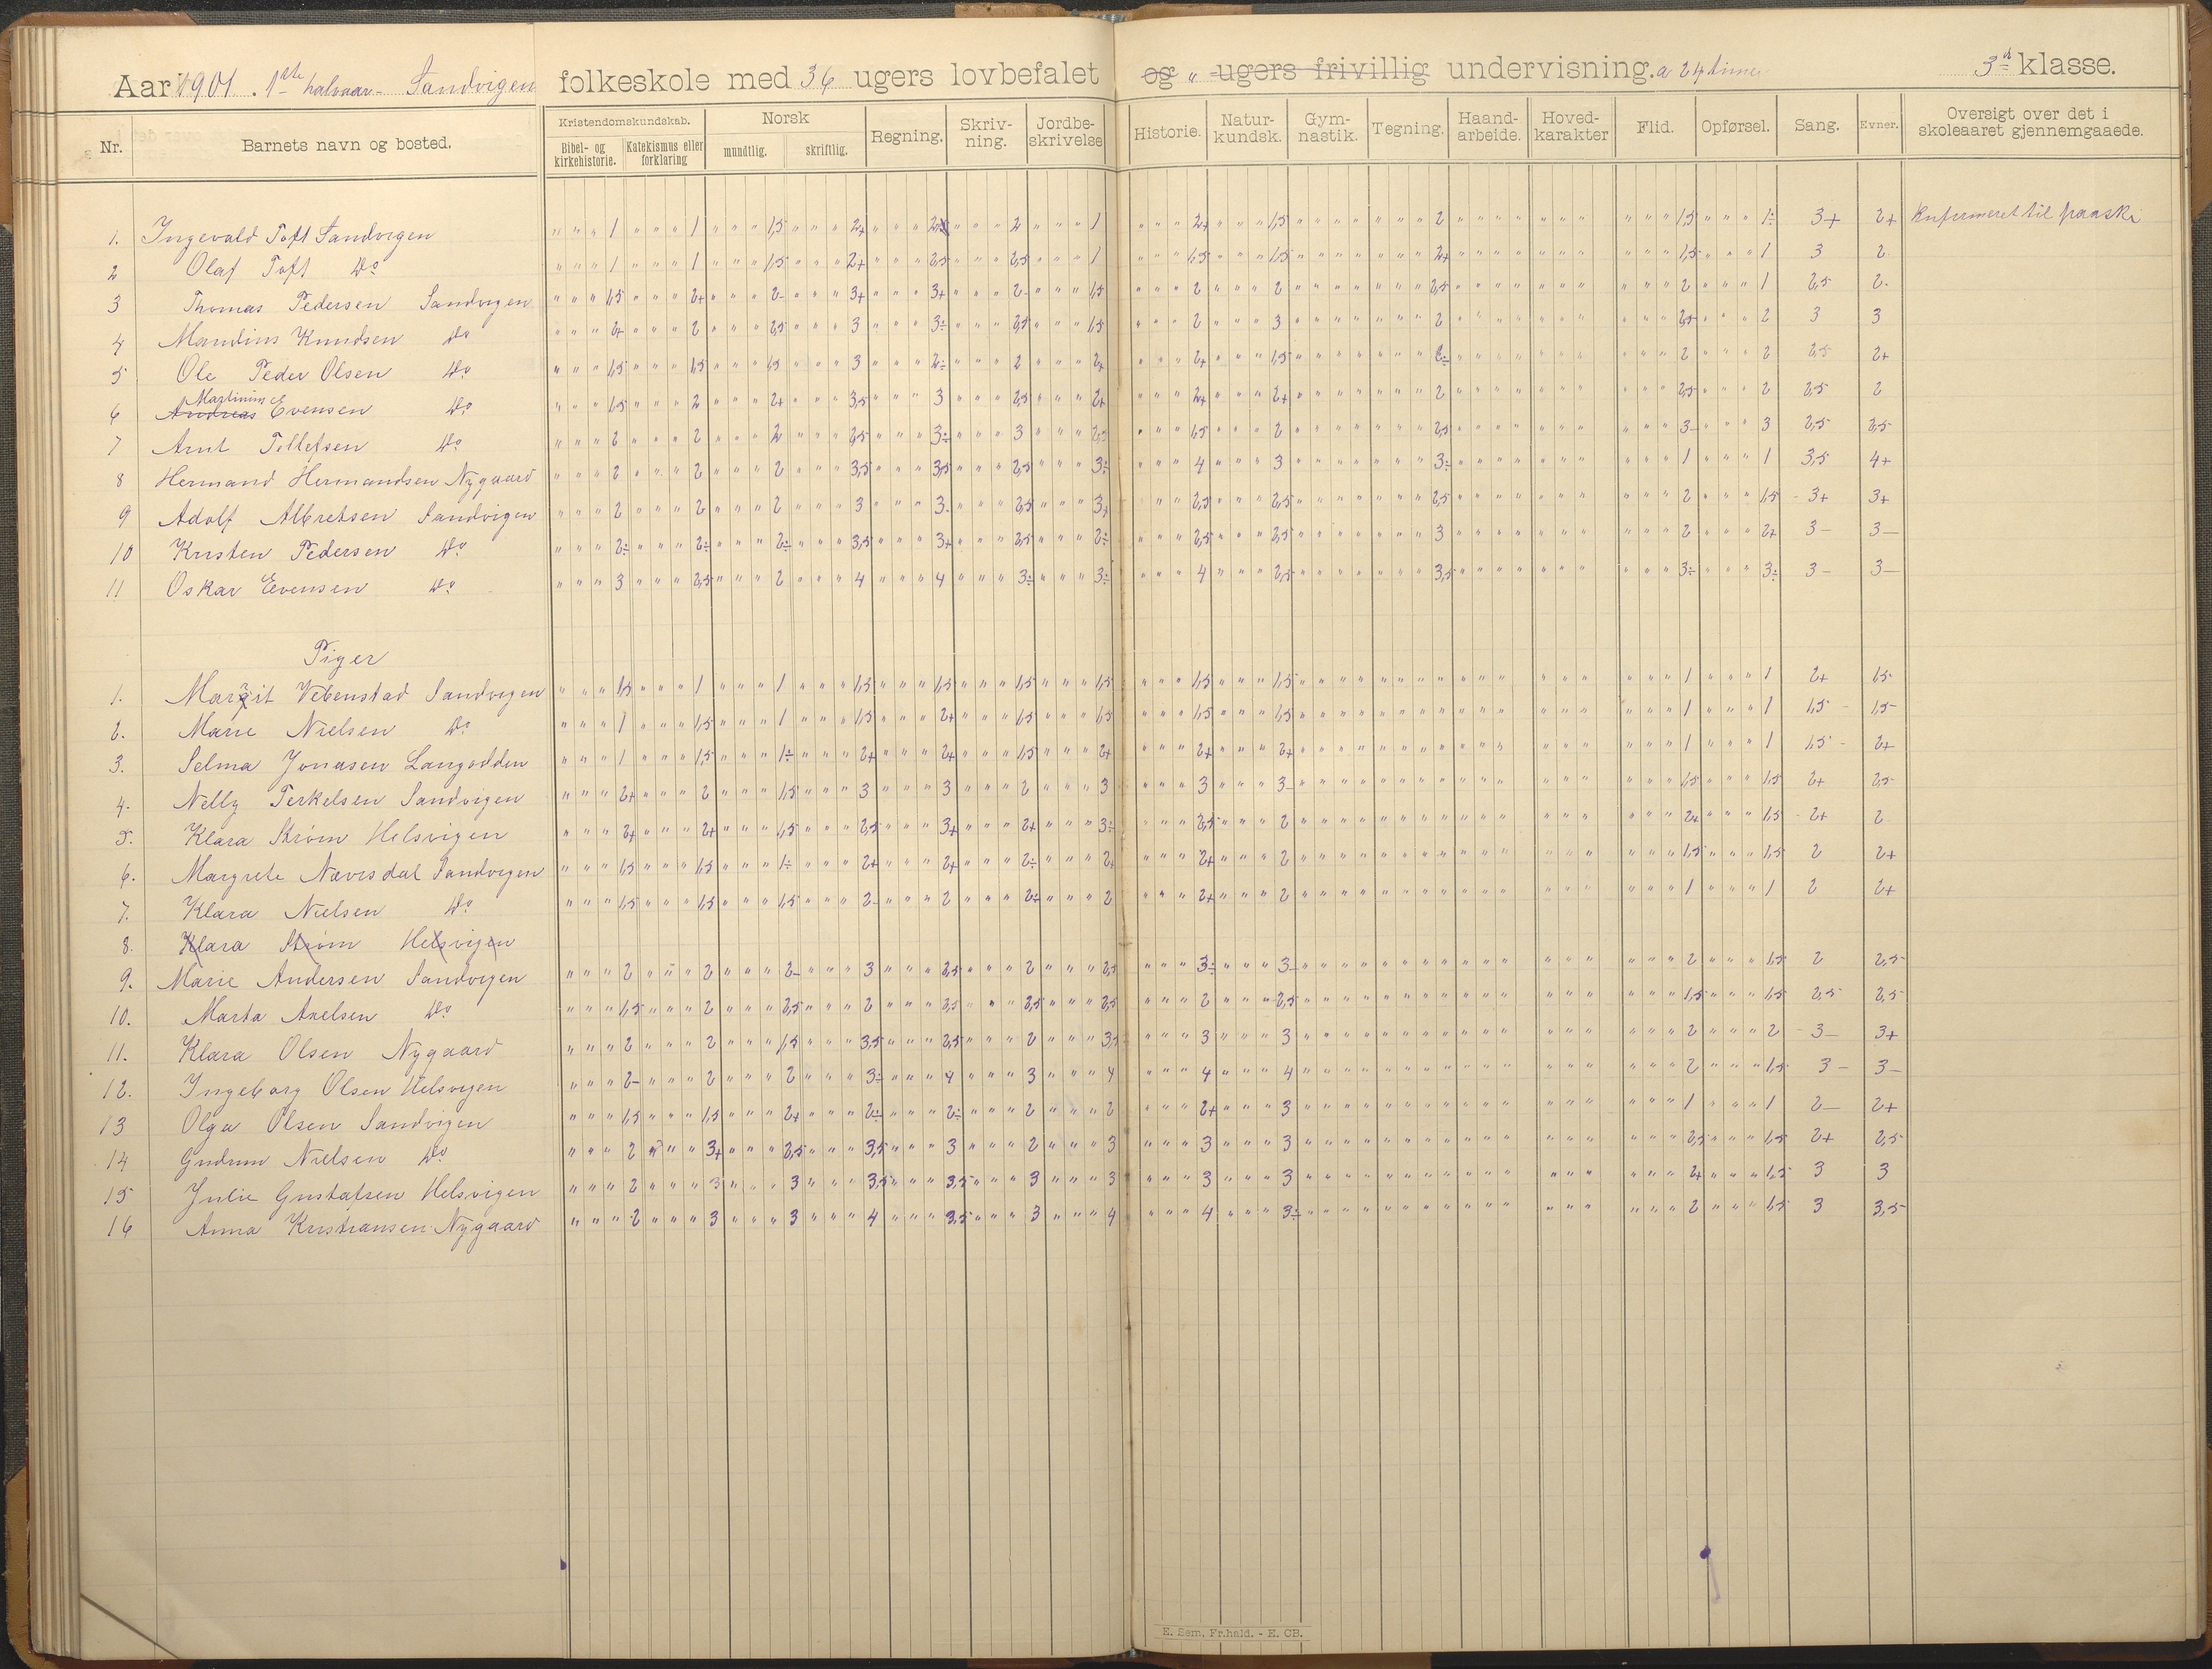 Aar 1901. 1ste halvaar - Sandvigen folkeskole med 36 ugers lovbefalet og " ugers frivillig undervisning. a 24 timer 3die klasse.
Nr. Barnets navn og bosted. Kristendomskundskab. Bibel- og kirkehistorie. Katekismus eller forklaring Norsk mundtlig. skriftlig. Regning. Skriv-ning. Jordbe-skrivelse Historie. Natur-kundsk. Gym-nastik. Tegning. Haand-arbeide. Hoved-karakter Flid. Opførsel. Sang. Evner. Oversigt over det i skoleaaret gjennemgaaede.
1. Ingevald Toft Sandvigen 1 1 1,5 2+ 2÷ 2 1 2+ 1,5 2 1,5 1÷ 3+ 2+ Knfirmeret til paaske
2 Olaf Toft Do 1 1 1,5 2+ 2,5 2,5 1 1,5 1,5 2+ 1,5 1 3 2
3 Thomas Pedersen Sandvigen 1,5 2+ 2- 3+ 3+ 2- 1,5 2 2 2,5 2 1 2,5 2.
4 Mandius Knudsen Do 2+ 2 2,5 3 3÷ 2,5 1,5 2 3 2 2,5 2 3 3
5 Ole Peder Olsen Do 1,5 1,5 1,5 3 2÷ 2 2+ 2+ 1,5 2÷ 2 2 2,5 2+
Martinius
6 Andreas Evensen Do 1,5 2 2+ 3,5 3 2,5 2+ 2+ 2+ 2 2,5 2 2,5 2
7 Arnt Tellefsen Do 2 2 2 2,5 3÷ 3 2,5 1,5 2 2,5 3- 3 2,5 2,5
8 Hermand Hermandsen Nygaard 2 2 2 3,5 3,5 2,5 3÷ 4 3 3÷ 1 1 3,5 4+
9 Adolf Albretsen Sandvigen 2 2 2 3 3- 2,5 3+ 2,5 2,5 2,5 2 1,5 3+ 3+
10 Kristen Pedersen Do 2÷ 2÷ 2÷ 3,5 3+ 2,5 2÷ 2,5 2,5 3 2 2+ 3- 3-
11 Oskar Evensen Do 3 2,5 2 4 4 3÷ 3÷ 4 2,5 3,5 3÷ 3÷ 3- 3-
Piger
1. Margit Vebenstad Sandvigen 1,5 1 1 1,5 1,5 1,5 1,5 1,5 1,5 1 1 2+ 1,5
2. Marie Nielsen Do 1 1,5 1 1,5 2+ 1,5 1,5 1,5 1,5 1 1 1,5 1,5
3. Selma Jonasen Langodden 1 1,5 1÷ 2+ 2+ 1,5 2+ 2+ 2+ 1 1 1,5 2+
4. Nelly Terkelsen Sandvigen 2+ 2 1,5 3 3 2 3 3 3- 1,5 1,5 2+ 2,5
5. Klara Strøm Helsvigen 2+ 2+ 1,5 2,5 3+ 2+ 3÷ 2,5 2 2+ 1,5 2+ 2
6. Margrete Nævisdal Sandvigen 1,5 1,5 1÷ 2+ 2+ 2÷ 2+ 2+ 2 1,5 1,5 2 2+
7. Klara Nielsen Do 1,5 1,5 1,5 2- 2 2÷ 2 2+ 2 1 1 2 2+
8. Klara Strøm Helsvigen
9. Marie Andersen Sandvigen 2 2 2- 3 2,5 2 2,5 3÷ 3- 2 1,5 2 2,5
10. Marta Axelsen Do 1,5 2 2,5 2 2,5 2,5 2,5 2 2,5 1,5 1,5 2,5 2,5
11. Klara Olsen Nygaard 2 2 1,5 3,5 2,5 2 3,5 3 3 2 2 3- 3+
12. Ingeborg Olsen Helsvigen 2- 2 2 3÷ 4 3 4 4 4 2 1,5 3- 3-
13 Olga Olsen Sandvigen 1,5 1,5 2+ 2÷ 2÷ 2 2 2+ 3 1 1 2- 2+
14 Gudrun Nielsen Do 2 3+ 2,5 3,5 3 2 3 3 3 2,5 1,5 2+ 2,5
15 Julie Gustafsen Helsvigen 2 3 3 3,5 3,5 3 3 3 3 2+ 1,5 3 3
16 Anna Kristiansen Nygaard 2 3 3 4 3,5 3 4 4 3÷ 2 1,5 3 3,5
E. Sem, Fr.hald. - E. CB.